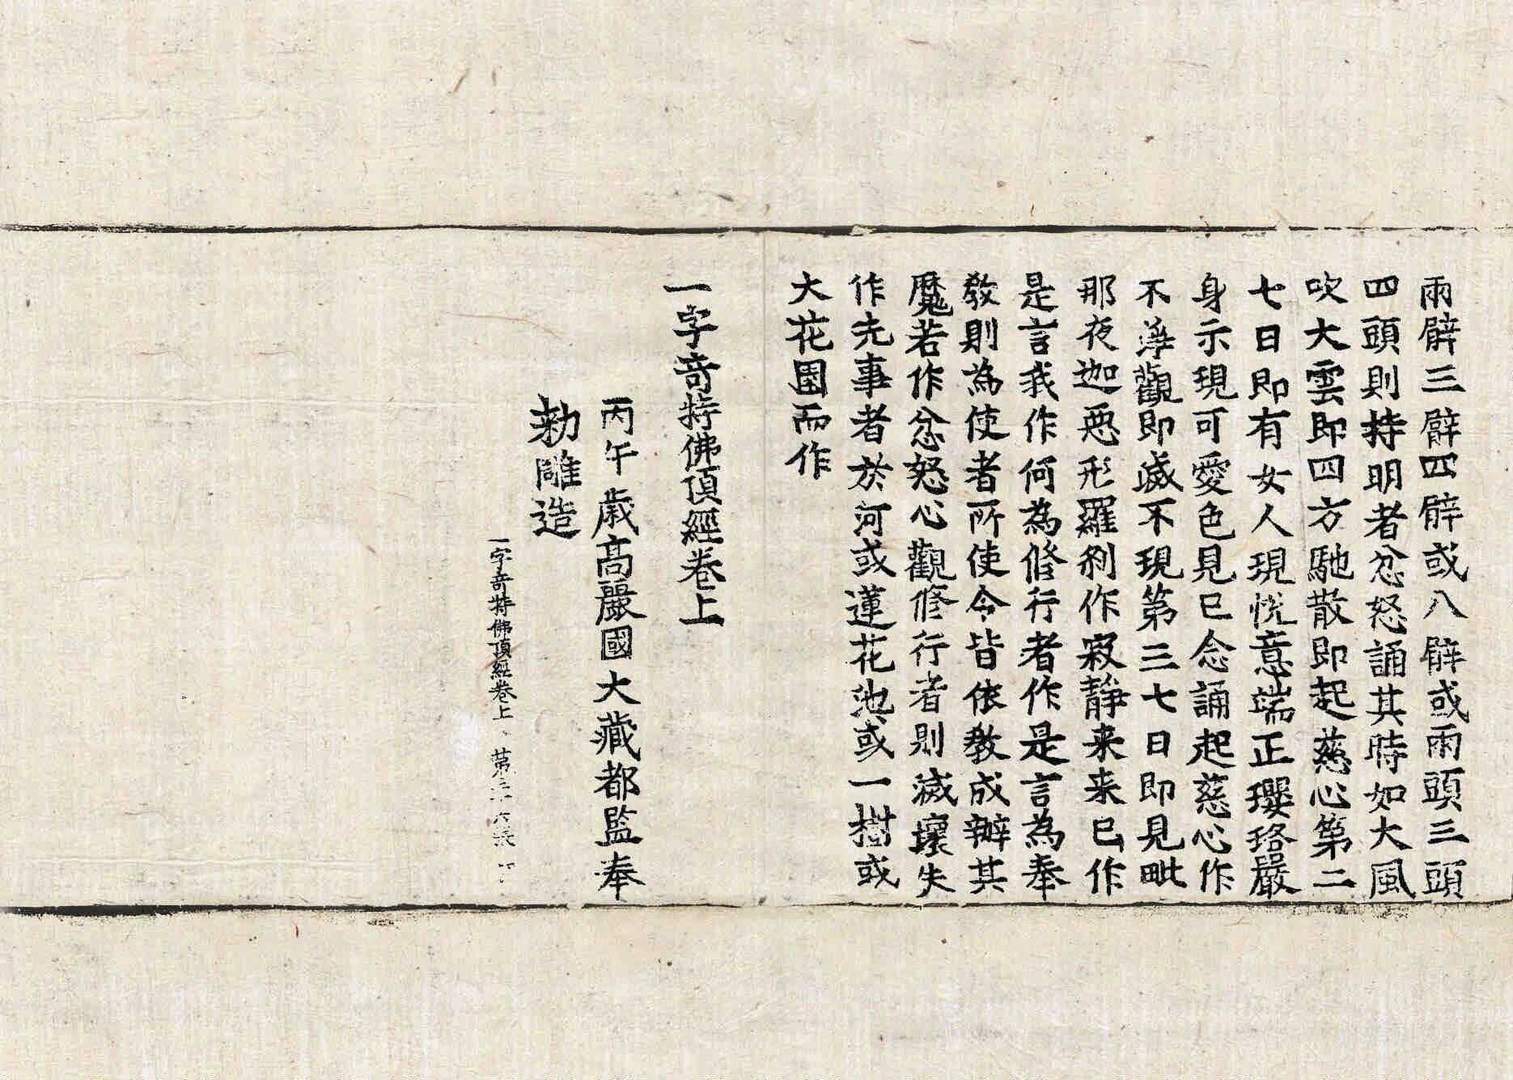 兩臂三臂四臂或八臂或兩頭三頭
四頭則持明者忿怒誦其時如大風
吹大雲即四方馳散即起慈心第二
七日即有女人現恱意端正瓔珞嚴
身示現可愛色見已念誦起慈心作
不淨觀即滅不現第三七日即見毗
那夜迦惡形羅剎作寂靜来来已作
是言我作何為修行者作是言為奉
教則為使者所使令皆依教成辦其
魔若作忿怒心觀修行者則滅壞失
作先事者於河或蓮花池或一樹或
大花園而作
一字奇特佛頂經卷上
丙午歲高麗國大藏都監奉
勅雕造
一字奇特佛頂經卷上 第三十六張